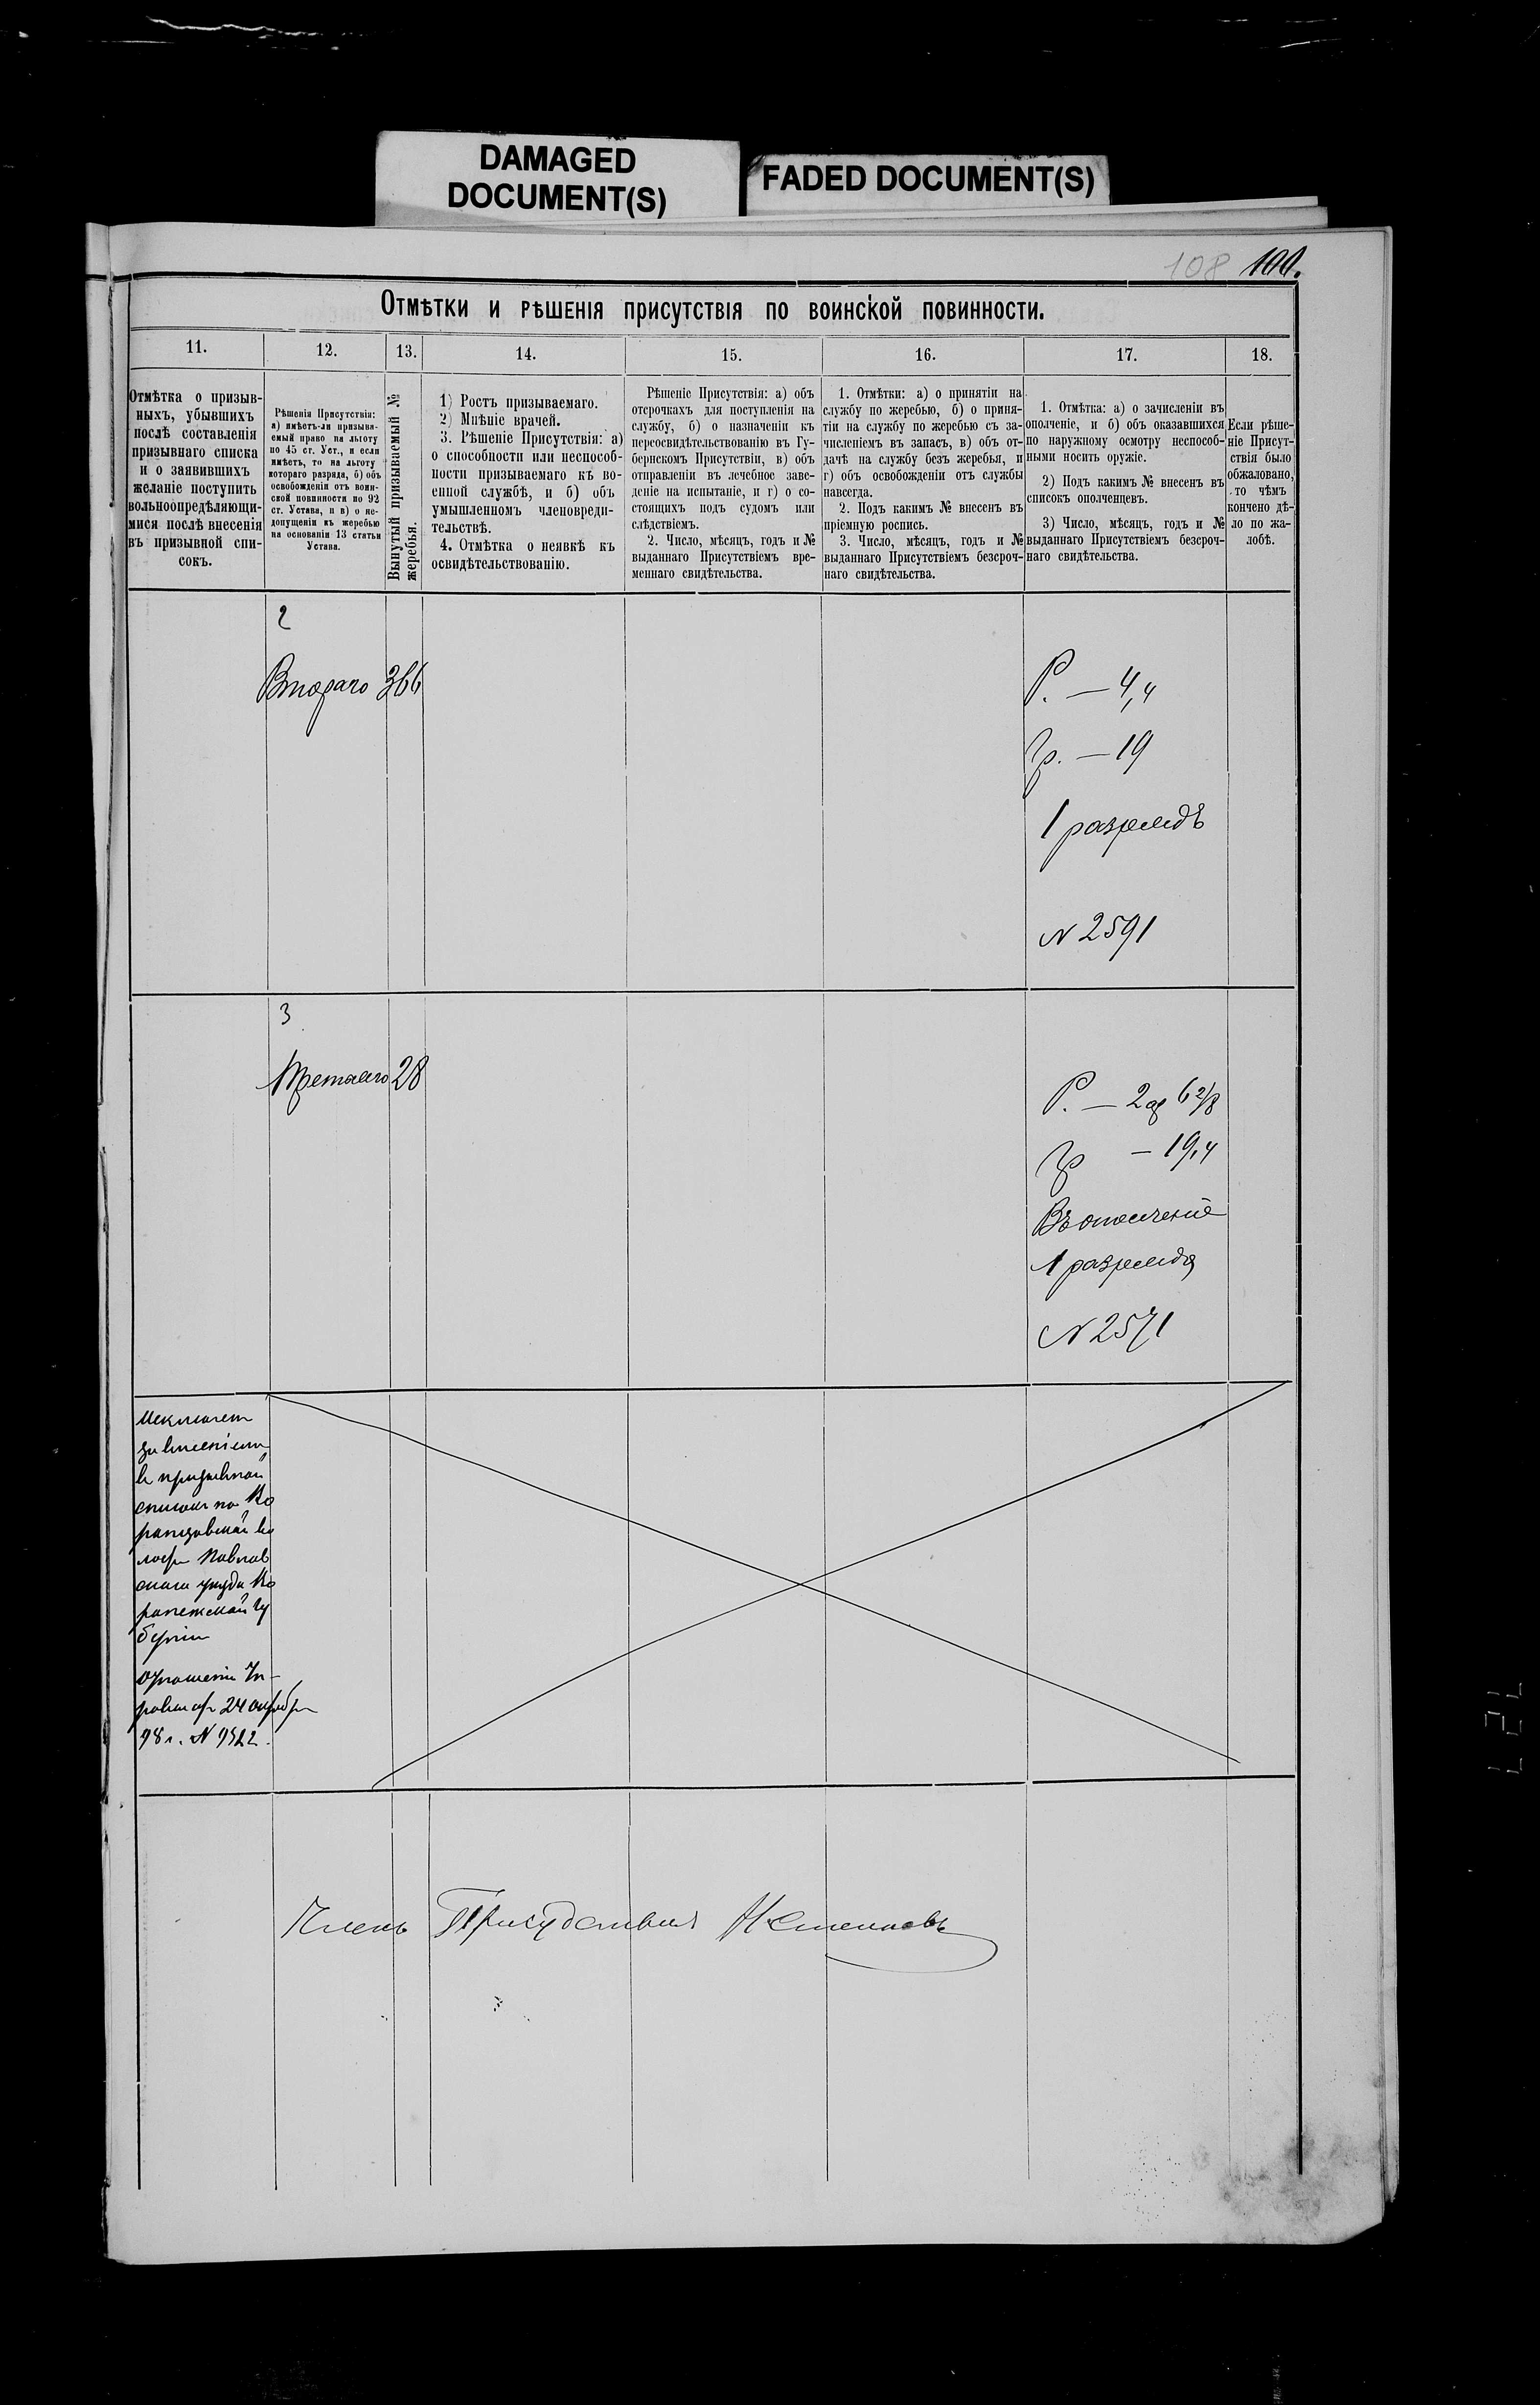 DAMAGED
DOCUMENT(S)
FADED DOCUMENT(S)
108 101.
Отмѣтки и рѣшенія присутствія по воинской повинности.
11. 12. 13. 14. 15. 16. 17. 18.
Отмѣтка о призыв-
ныхъ, убывшихъ
послѣ составленія
призывнаго списка
и о заявившихъ
желаніе поступить
вольноопредѣляющи-
мися послѣ внесенія
въ призывной спи-
сокъ.
Рѣшенія Присутствія:
а) имѣетъ-ли призыва-
емый право на льготу
по 45 ст. Уст., и если
имѣетъ, то на льготу
котораго разряда, б) объ
освобожденіи отъ воин-
ской повинности по 92
ст. Устава, и в) о не-
допущеніи къ жеребью
на основаніи 13 статьи
Устава.
Вынутый призываемый №
жеребья.
1) Ростъ призываемаго.
2) Мнѣніе врачей.
3. Рѣшеніе Присутствія: а)
о способности или неспособ-
ности призываемаго къ во-
енной службѣ, и б) объ
умышленномъ членовреди-
тельствѣ.
4. Отмѣтка о неявкѣ къ
освидѣтельствованію.
Рѣшеніе Присутствія: а) объ
отсрочкахъ для поступленія на
службу, б) о назначеніи къ
переосвидѣтельствованію въ Гу-
бернскомъ Присутствіи, в) объ
отправленіи въ лечебное заве-
деніе на испытаніе, и г) о со-
стоящихъ подъ судомъ или
слѣдствіемъ.
2. Число, мѣсяцъ, годъ и №
выданнаго Присутствіемъ вре-
меннаго свидѣтельства.
1. Отмѣтки: а) о принятіи на
службу по жеребью, б) о приня-
тіи на службу по жеребью съ за-
численіемъ въ запасъ, в) объ от-
дачѣ на службу безъ жеребья, и
г) объ освобожденіи отъ службы
навсегда.
2. Подъ какимъ № внесенъ въ
пріемную роспись.
3. Число, мѣсяцъ, годъ и №
выданнаго Присутствіемъ безсроч-
наго свидѣтельства.
1. Отмѣтка: а) о зачисленіи въ
ополченіе, и б) объ оказавшихся
по наружному осмотру неспособ-
ными носить оружіе.
2) Подъ какимъ № внесенъ въ
списокъ ополченцевъ.
3) Число, мѣсяцъ, годъ и №
выданнаго Присутствіемъ безсроч-
наго свидѣтельства.
Если рѣше-
ніе Присут-
ствія было
обжаловано,
то чѣмъ
кончено дѣ-
ло по жа-
лобѣ.
2
Втораго 366
Р. — 4,4
Гр. — 19
1 разрядъ
N 2591
3
Третьяго 28
Р. — 2 ар 6 2/8
Гр — 19,4
Въ ополченіе
1 разряда
N 2571
за внесеніем
в призывной
список по Во
ронцовской во
лости Павлов
скаго уезда Во
ронежской Гу
берніи
24 октября
98 г. N
Членъ Присудствия